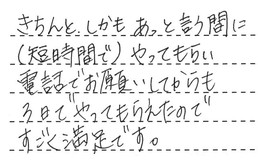 きちんと、しかも あっと言う間に
(短時間で)やってもらい
電話でお願いしてからも
3日でやってもらえたので
すごく満足です。